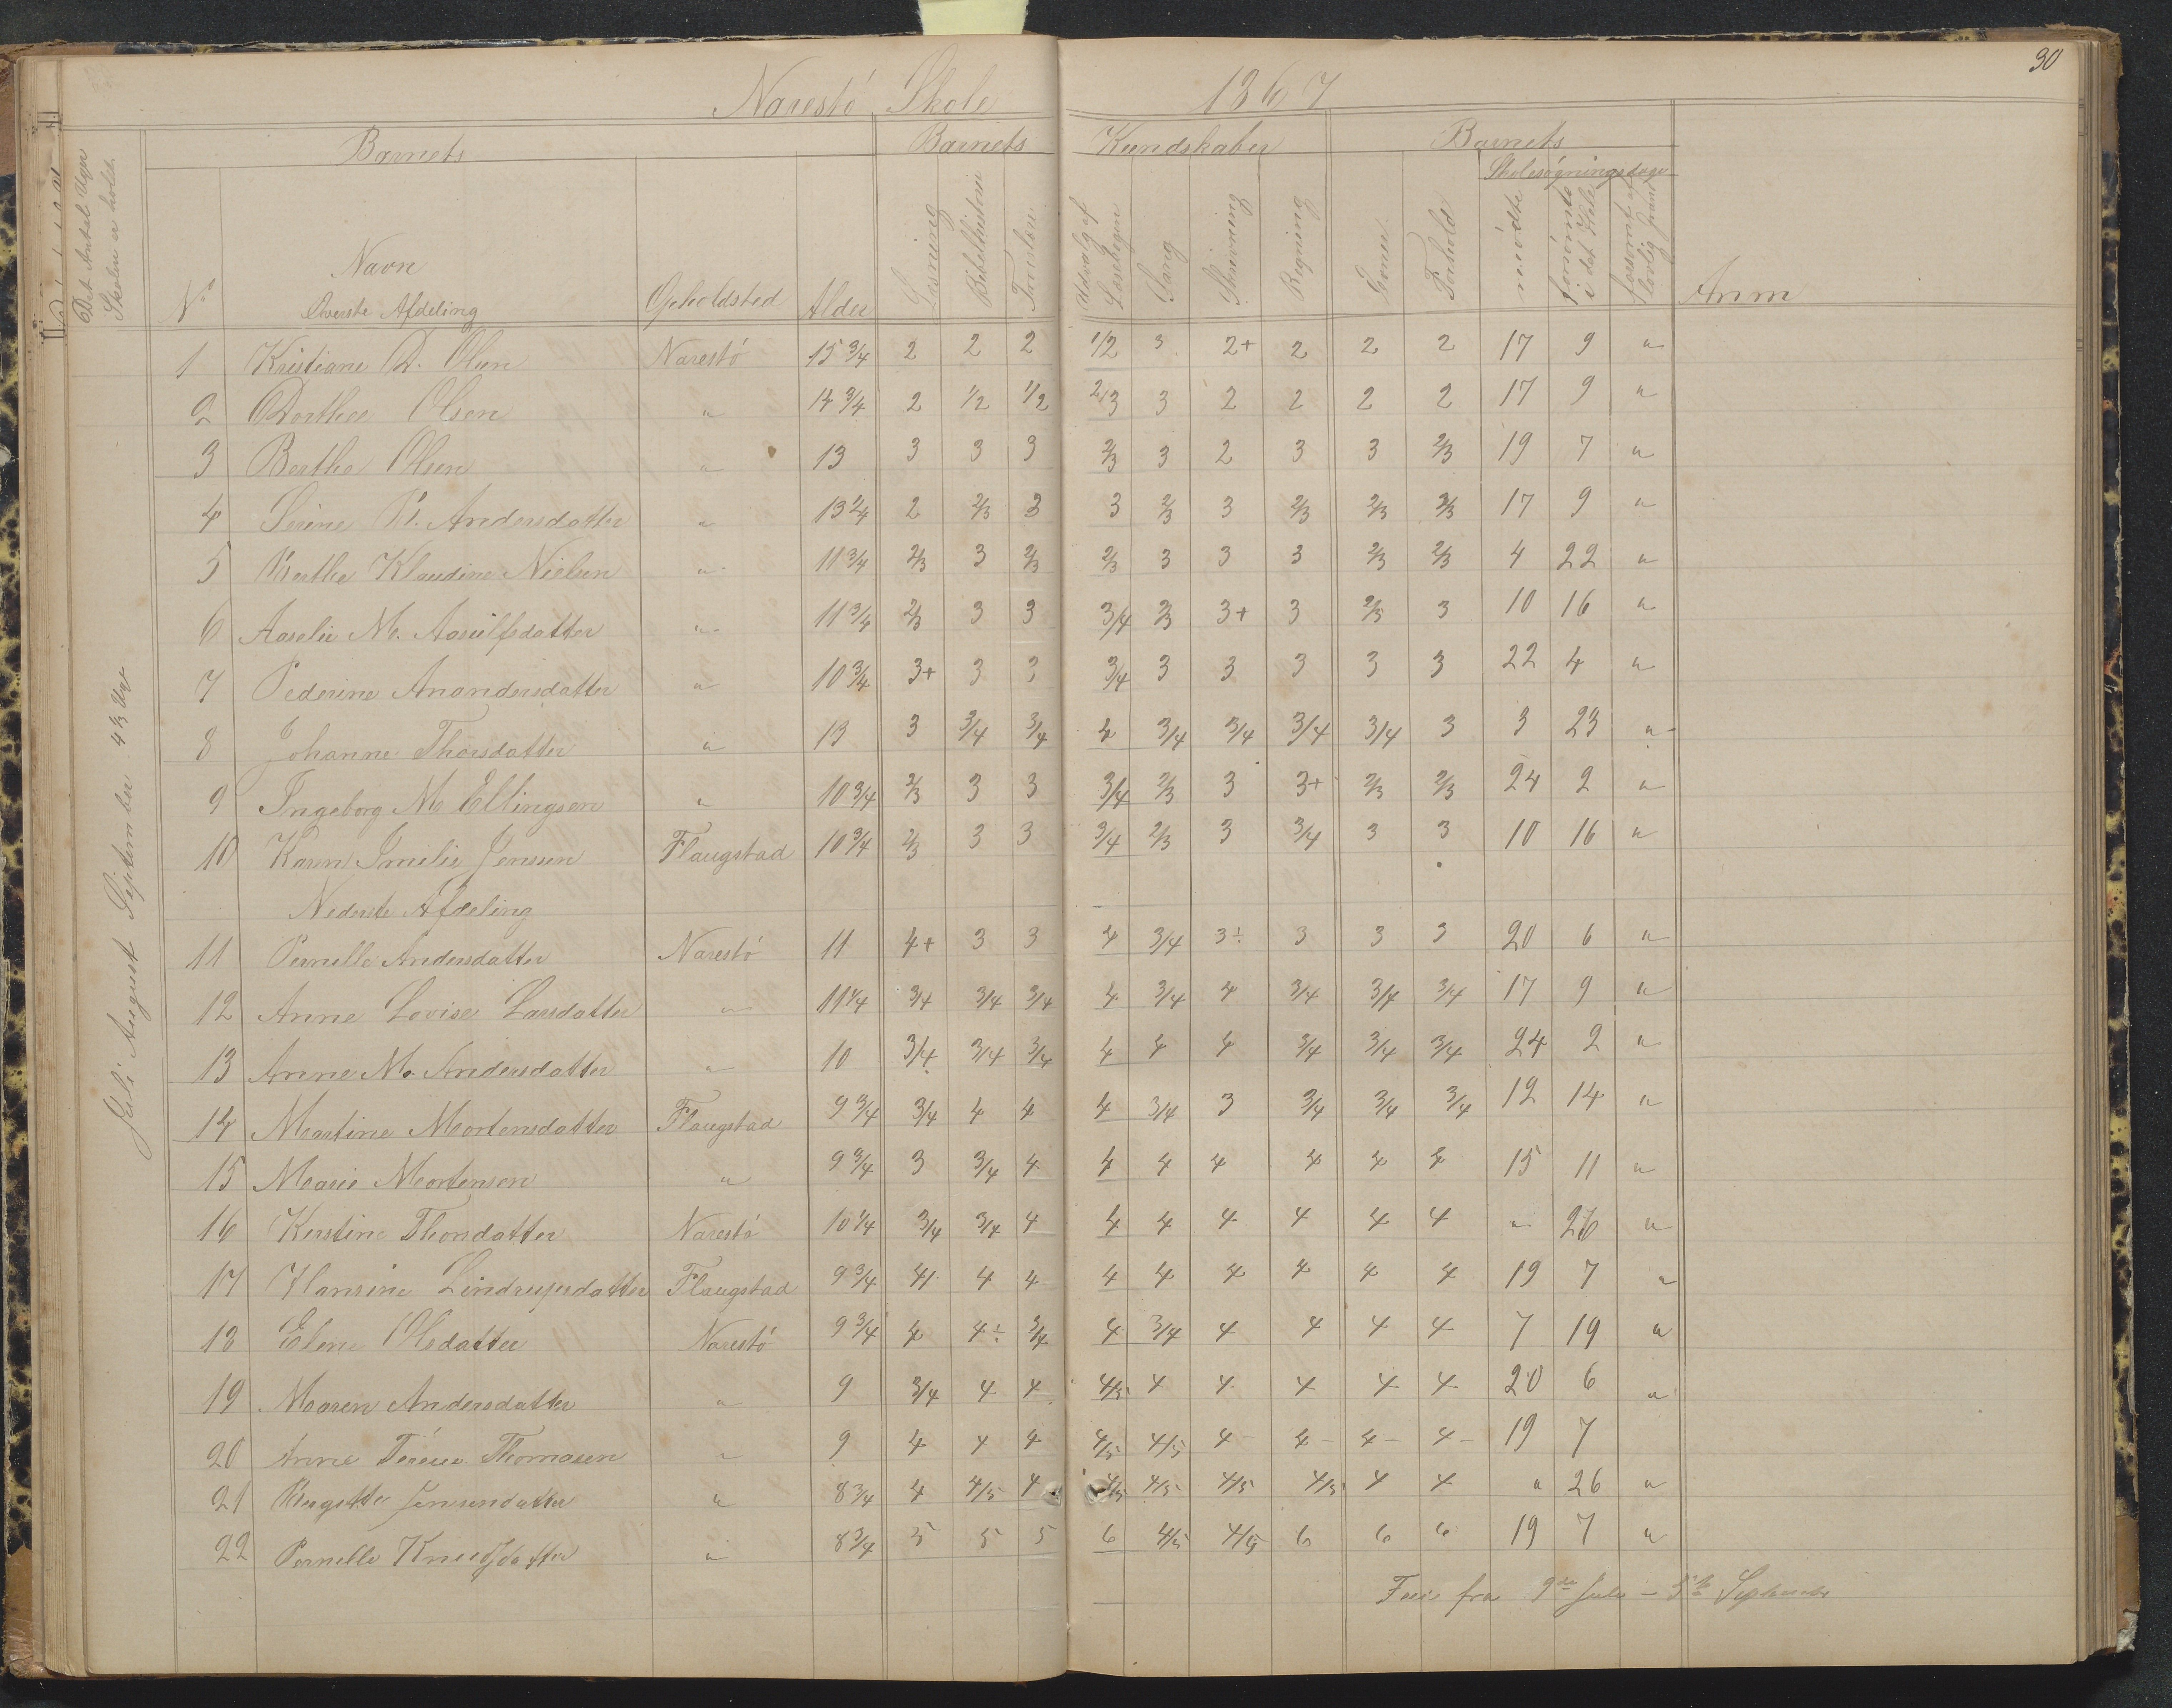 30
Narestö Skole 1867
Barnets Barnets Kundskaber Barnets
Det Antal Uger Skolen er holdt.
No Navn Opholdsted Alder Læsning Bibelhistorie Troeslær. Udvalg af Læsebogen Sang Skrivning Regning Evner Forhold Skolesögningsdage mødte forsömte i det Hele forsömt af lovlig Grund Anm
Øverste Afdeling
1 Kristiane D. Olsen Narestö 15 3/4 2 2 2 1/2 3 2+ 2 2 2 17 9 "
2 Dorthea Olsen " 14 3/4 2 1/2 1/2 2/3 3 2 2 2 2 17 9 "
3 Berthe Olsen " 13 3 3 3 2/3 3 2 3 3 2/3 19 7 "
4 Serine B. Andersdatter " 13 1/4 2 2/3 3 3 2/3 3 2/3 2/3 2/3 17 9 "
5 Berthe Klaudine Nielsen " 11 3/4 2/3 3 2/3 2/3 3 3 3 2/3 2/3 4 22 "
6 Aaselie M. Aasulfsdatter " 11 3/4 2/3 3 3 3/4 2/3 3+ 3 2/3 3 10 16 "
7 Pederine Anandersdatter " 10 3/4 3+ 3 3 3/4 3 3 3 3 3 22 4 "
8 Johanne Thorsdatter " 13 3 3/4 3/4 4 3/4 3/4 3/4 3/4 3 3 23 "
9 Ingeborg M Ellingsen " 10 3/4 2/3 3 3 3/4 2/3 3 3+ 2/3 2/3 24 2 "
10 Karen Emilie Jensen Flaugstad 10 3/4 2/3 3 3 3/4 2/3 3 3/4 3 3 10 16 "
Nederste Afdeling
11 Pernille Andersdatter Narestö 11 4+ 3 3 4 3/4 3÷ 3 3 3 20 6 "
12 Anne Lovise Larsdatter " 11 1/4 3/4 3/4 3/4 4 3/4 4 3/4 3/4 3/4 17 9 "
13 Anne M. Andersdatter " 10 3/4 3/4 3/4 4 4 4 3/4 3/4 3/4 24 2 "
14 Martine Mortensdatter Flaugstad 9 3/4 3/4 4 4 4 3/4 3 3/4 3/4 3/4 12 14 "
15 Marie Mortensen " 9 3/4 3 3/4 4 4 4 4 4 4 4 15 11 "
16 Kirstine Thondatter Narestö 10 1/4 3/4 3/4 4 4 4 4 4 4 4 " 26 "
17 Hansine Lindrupsdatter Flaugstad 9 3/4 4 4 4 4 4 4 4 4 4 19 7 "
18 Elene Olsdatter Narestö 9 3/4 4 4÷ 3/4 4 3/4 4 4 4 4 7 19 "
19 Maren Andersdatter " 9 3/4 4 4 4/5 4 4 4 4 4 20 6 "
20 Anne Terese Thomasen " 9 4 4 4 4/5 4/5 4- 4- 4- 4- 19 7
21 Birgitte Jensendatter " 8 3/4 4 4/5 4 4/5 4/5 4/5 4/5 4 4 " 26 "
22 Pernille Knudsdatter " 8 3/4 5 5 5 6 4/5 4/5 6 6 6 19 7 "
Juli August September 4 1/3 Uge
Ferie fra 9de Juli - 5te September